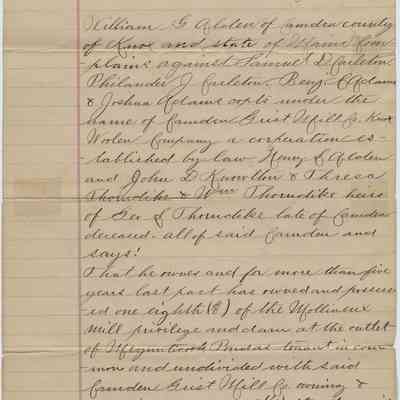 William G Alden of Camden county
of Knox and state of Maine Com
plains against Samuel D. Carleton
Philander J. Carleton. Benj. C. Adams
& Joshua Adams copts under the
name of Camden Grist Mill Co. Knox
Woolen Company a corporation es-
-tablished by law Henry L Alden
and John D Knowlton & Theresa
Thorndike & Wm Thorndike heirs
of Geo. S Thorndike late of Camden
deceased - all of said Camden and
says!
That he owns and for more than five
years last past has owned and possess-
-ed one eighth (⅛) of the Mollineux
Mill privilege and dam at the outlet
of tenant in com-
mon and undivided with said
Camden Grist Mill Co. owning &